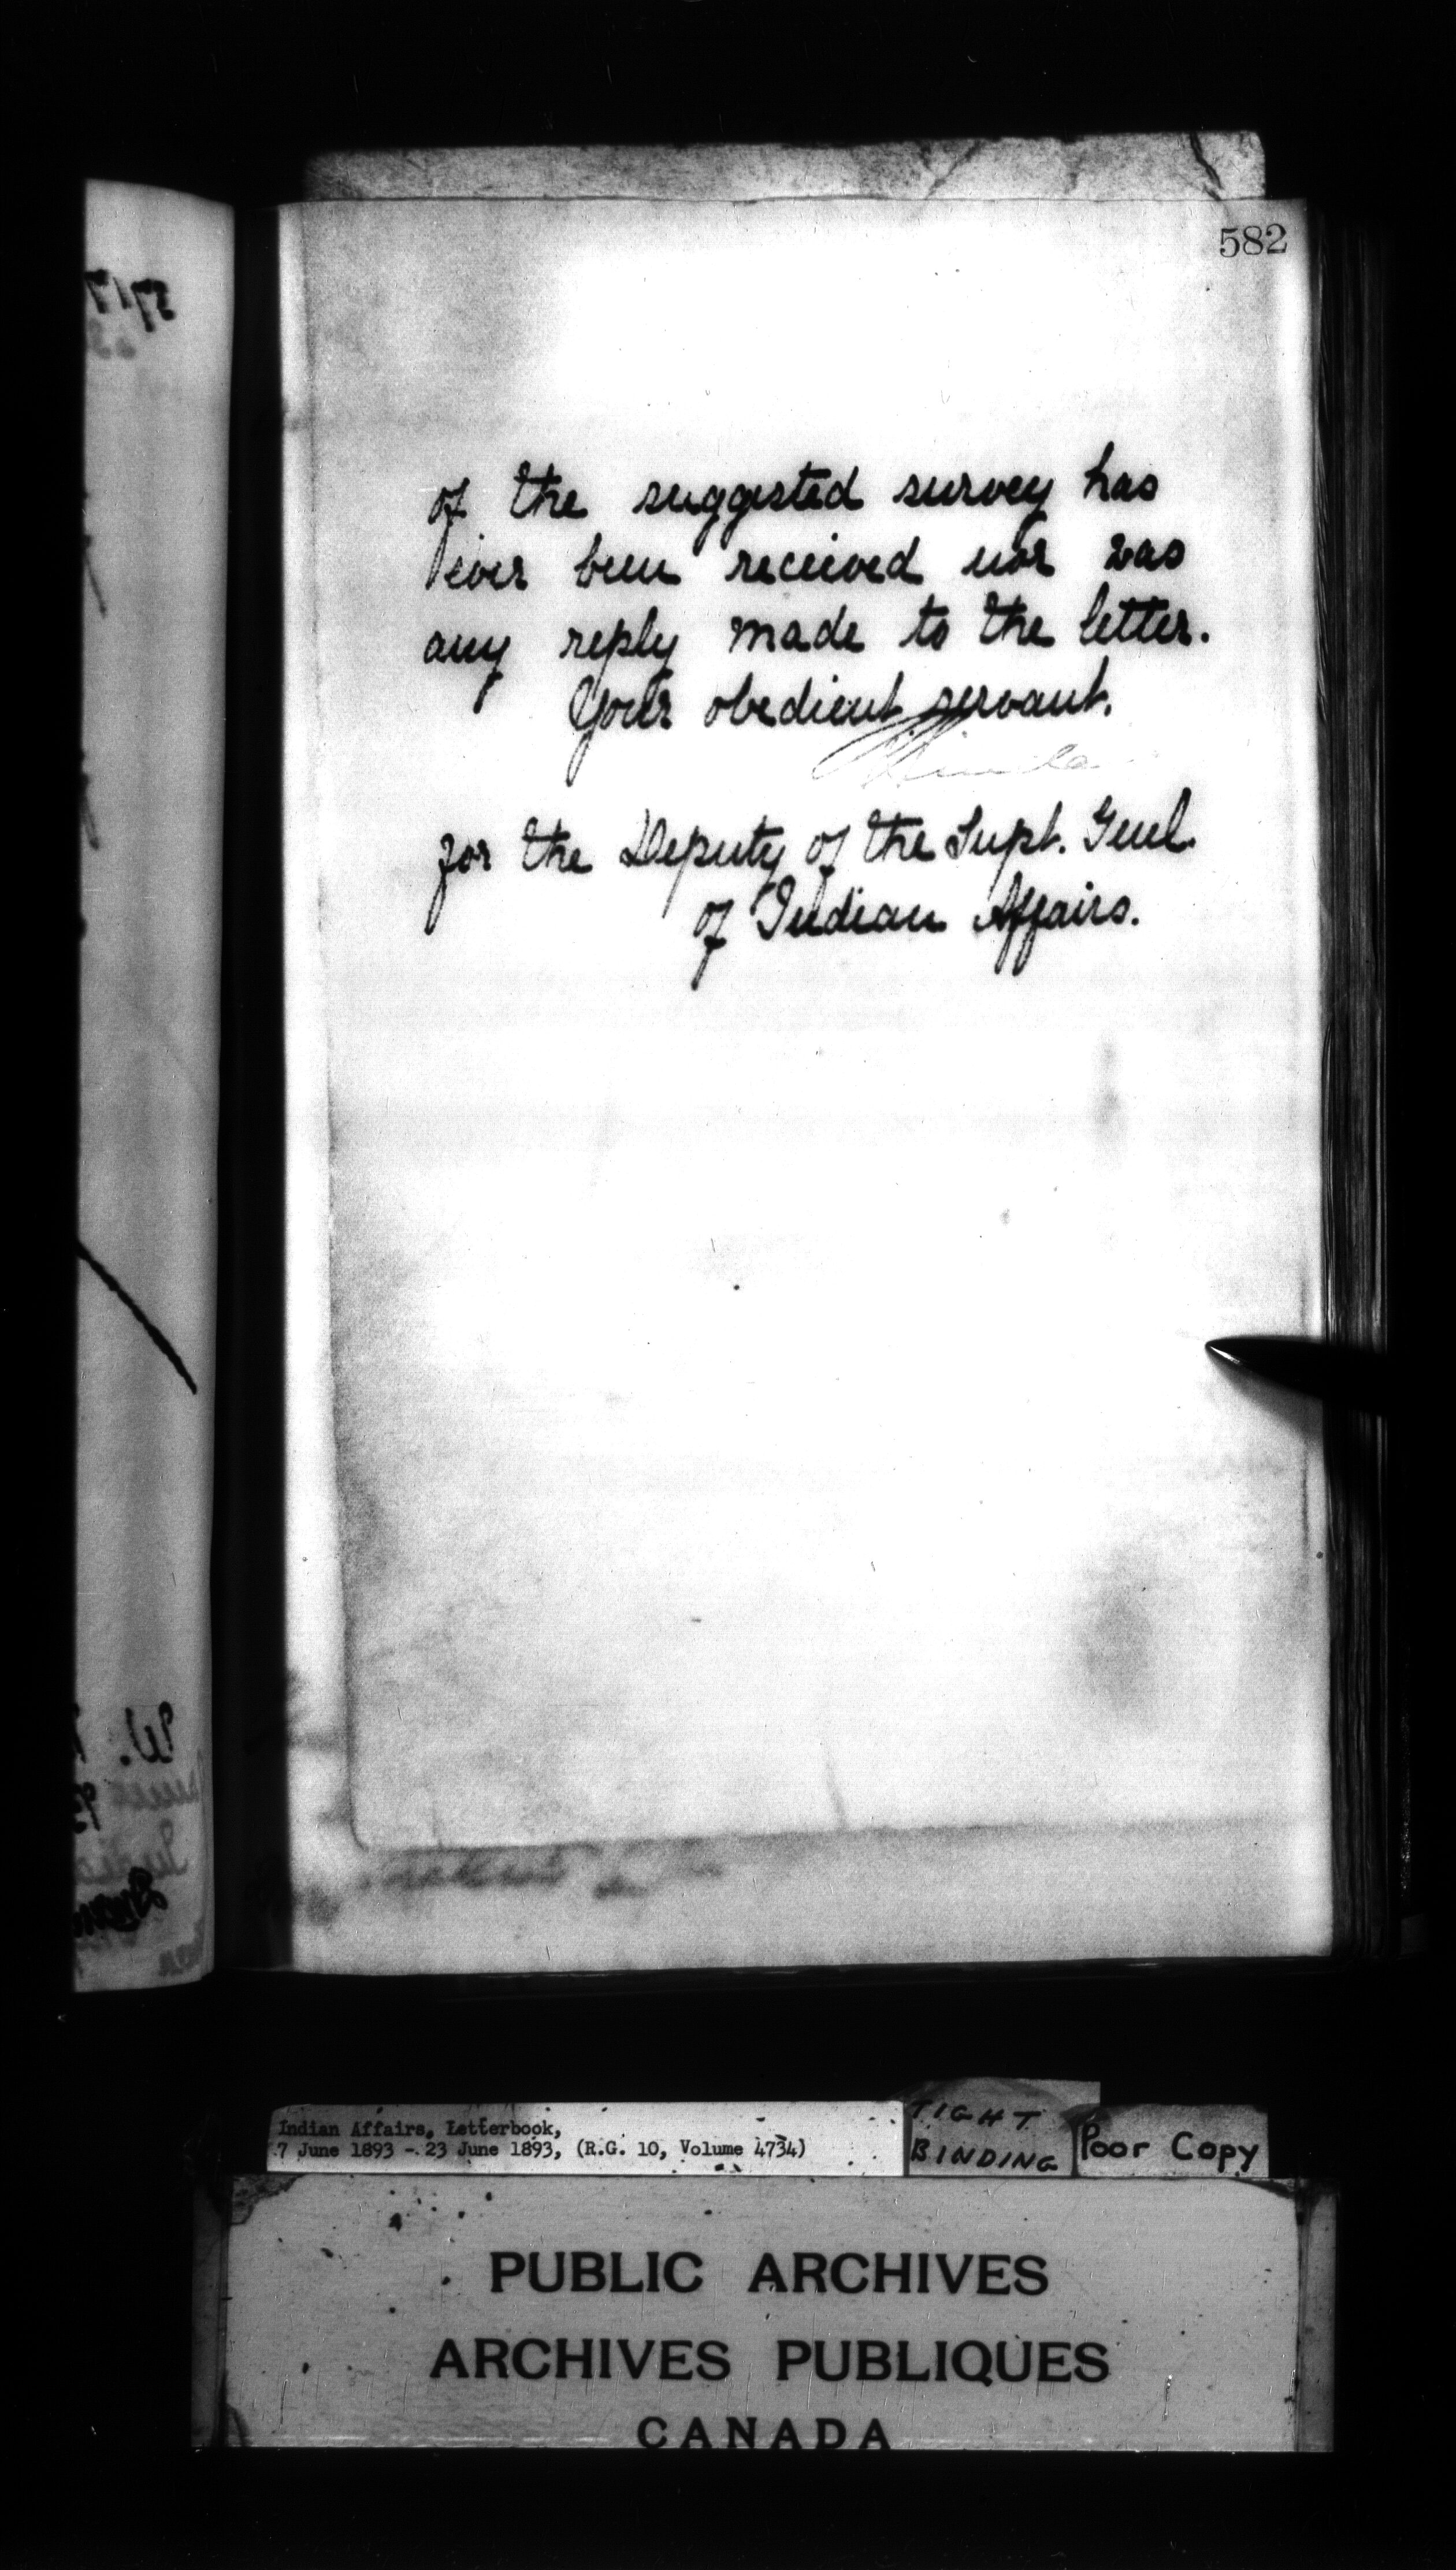 582
of the suggested survey has
ever been received nor was
any reply made to the letter.
Your obedient servant.
for the Deputy of the Supt. Genl.
of Indian Affairs.
Indian Affairs, Letterbook,
7 June 1893 - 23 June 1893, (R.G. 10, Volume 4734)
TIGHT
BINDING
Poor Copy
PUBLIC ARCHIVES
ARCHIVES PUBLIQUES
CANADA